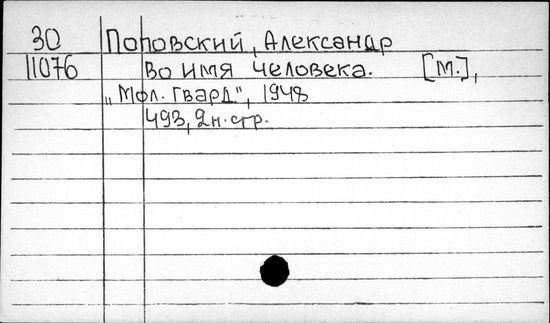 30 Поповский, Александр
11076 Во имя человека. [М.],
„Мол. Гвард", 1948
493, 2н. стр.